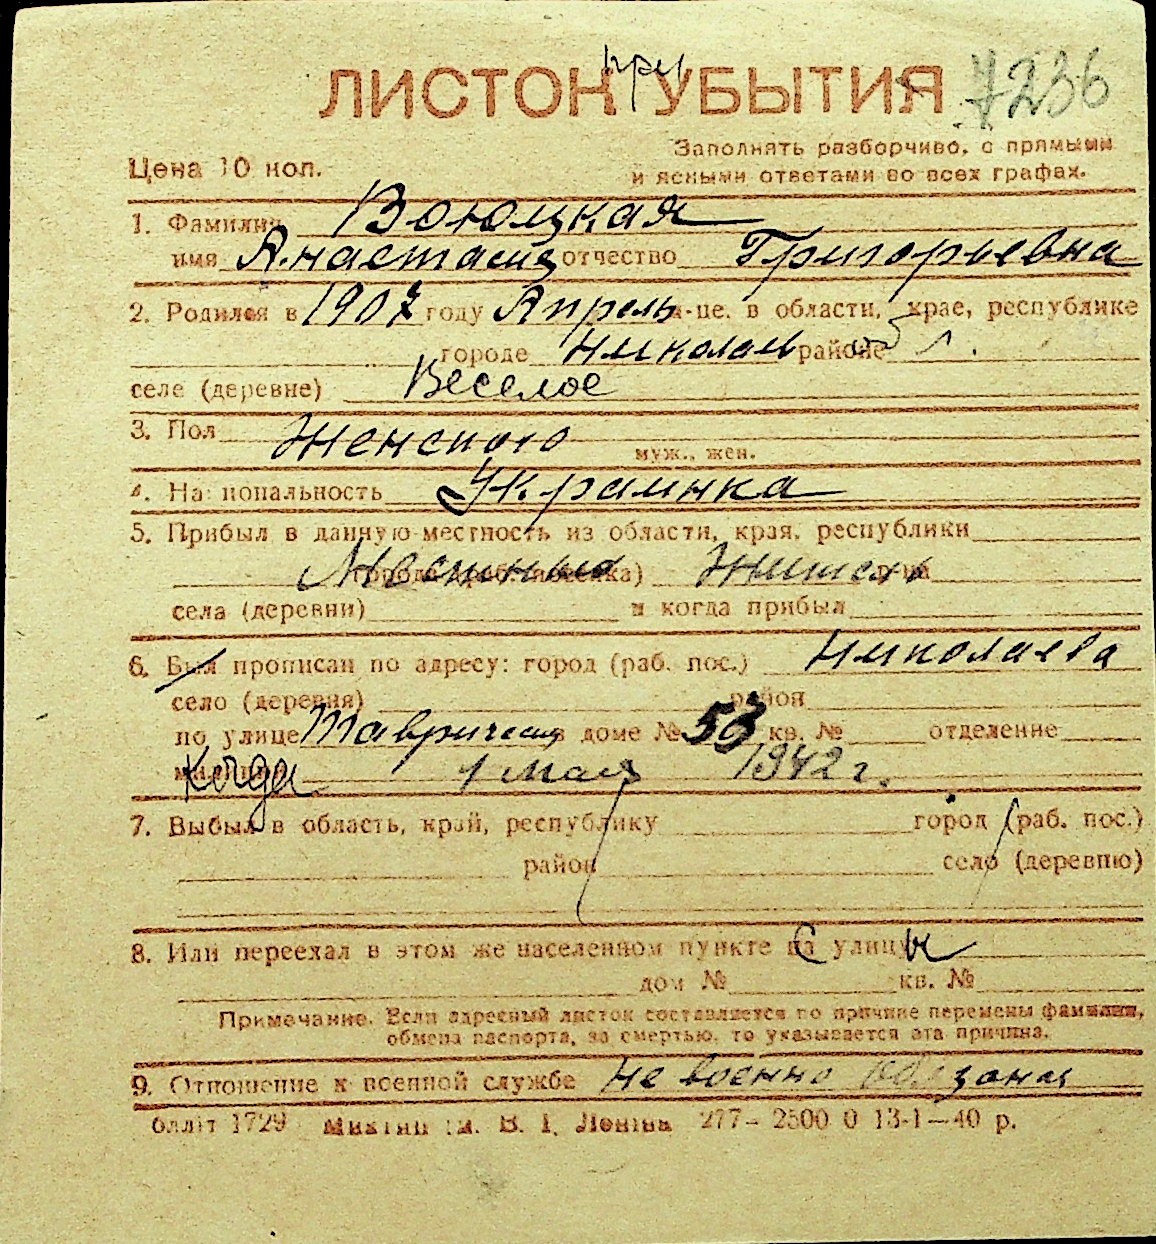 ЛИСТОК при УБЫТИЯ 7236
Заполнять разборчиво, с прямыми
Цена 10 коп. и ясными ответами во всех графах.
1. Фамилия Воюцкая
имя Анастасия отчество Григорьевна
2. Родился в 1907 году Апрель м-це. в области, крае, республике
городе Николаев районе обл.
селе (деревне) Веселое
3. Пол Женского муж., жен.
4. Национальность Украинка
5. Прибыл в данную местность из области, края, республики
Местный Житель
села (деревни) и когда прибыл
6. Был прописан по адресу: город (раб. пос.) Николаева
село (деревня) район
по улице Таврическая в доме № 53 кв. № отделение
милиции Когда 1 мая 1942 г.
7. Выбыл в область, край, республику город (раб. пос.)
район село (деревню)
8. Или переехал в этом же населенном пункте на С улицу ы
дом № кв. №
Примечание. Если адресный листок составляется по причине перемены фамилии,
обмена паспорта, за смертью, то указывается эта причина.
9. Отношение к военной службе не военно обязаная
1729 ім. В. І. Леніна 277—2500 0 13-1—40 р.